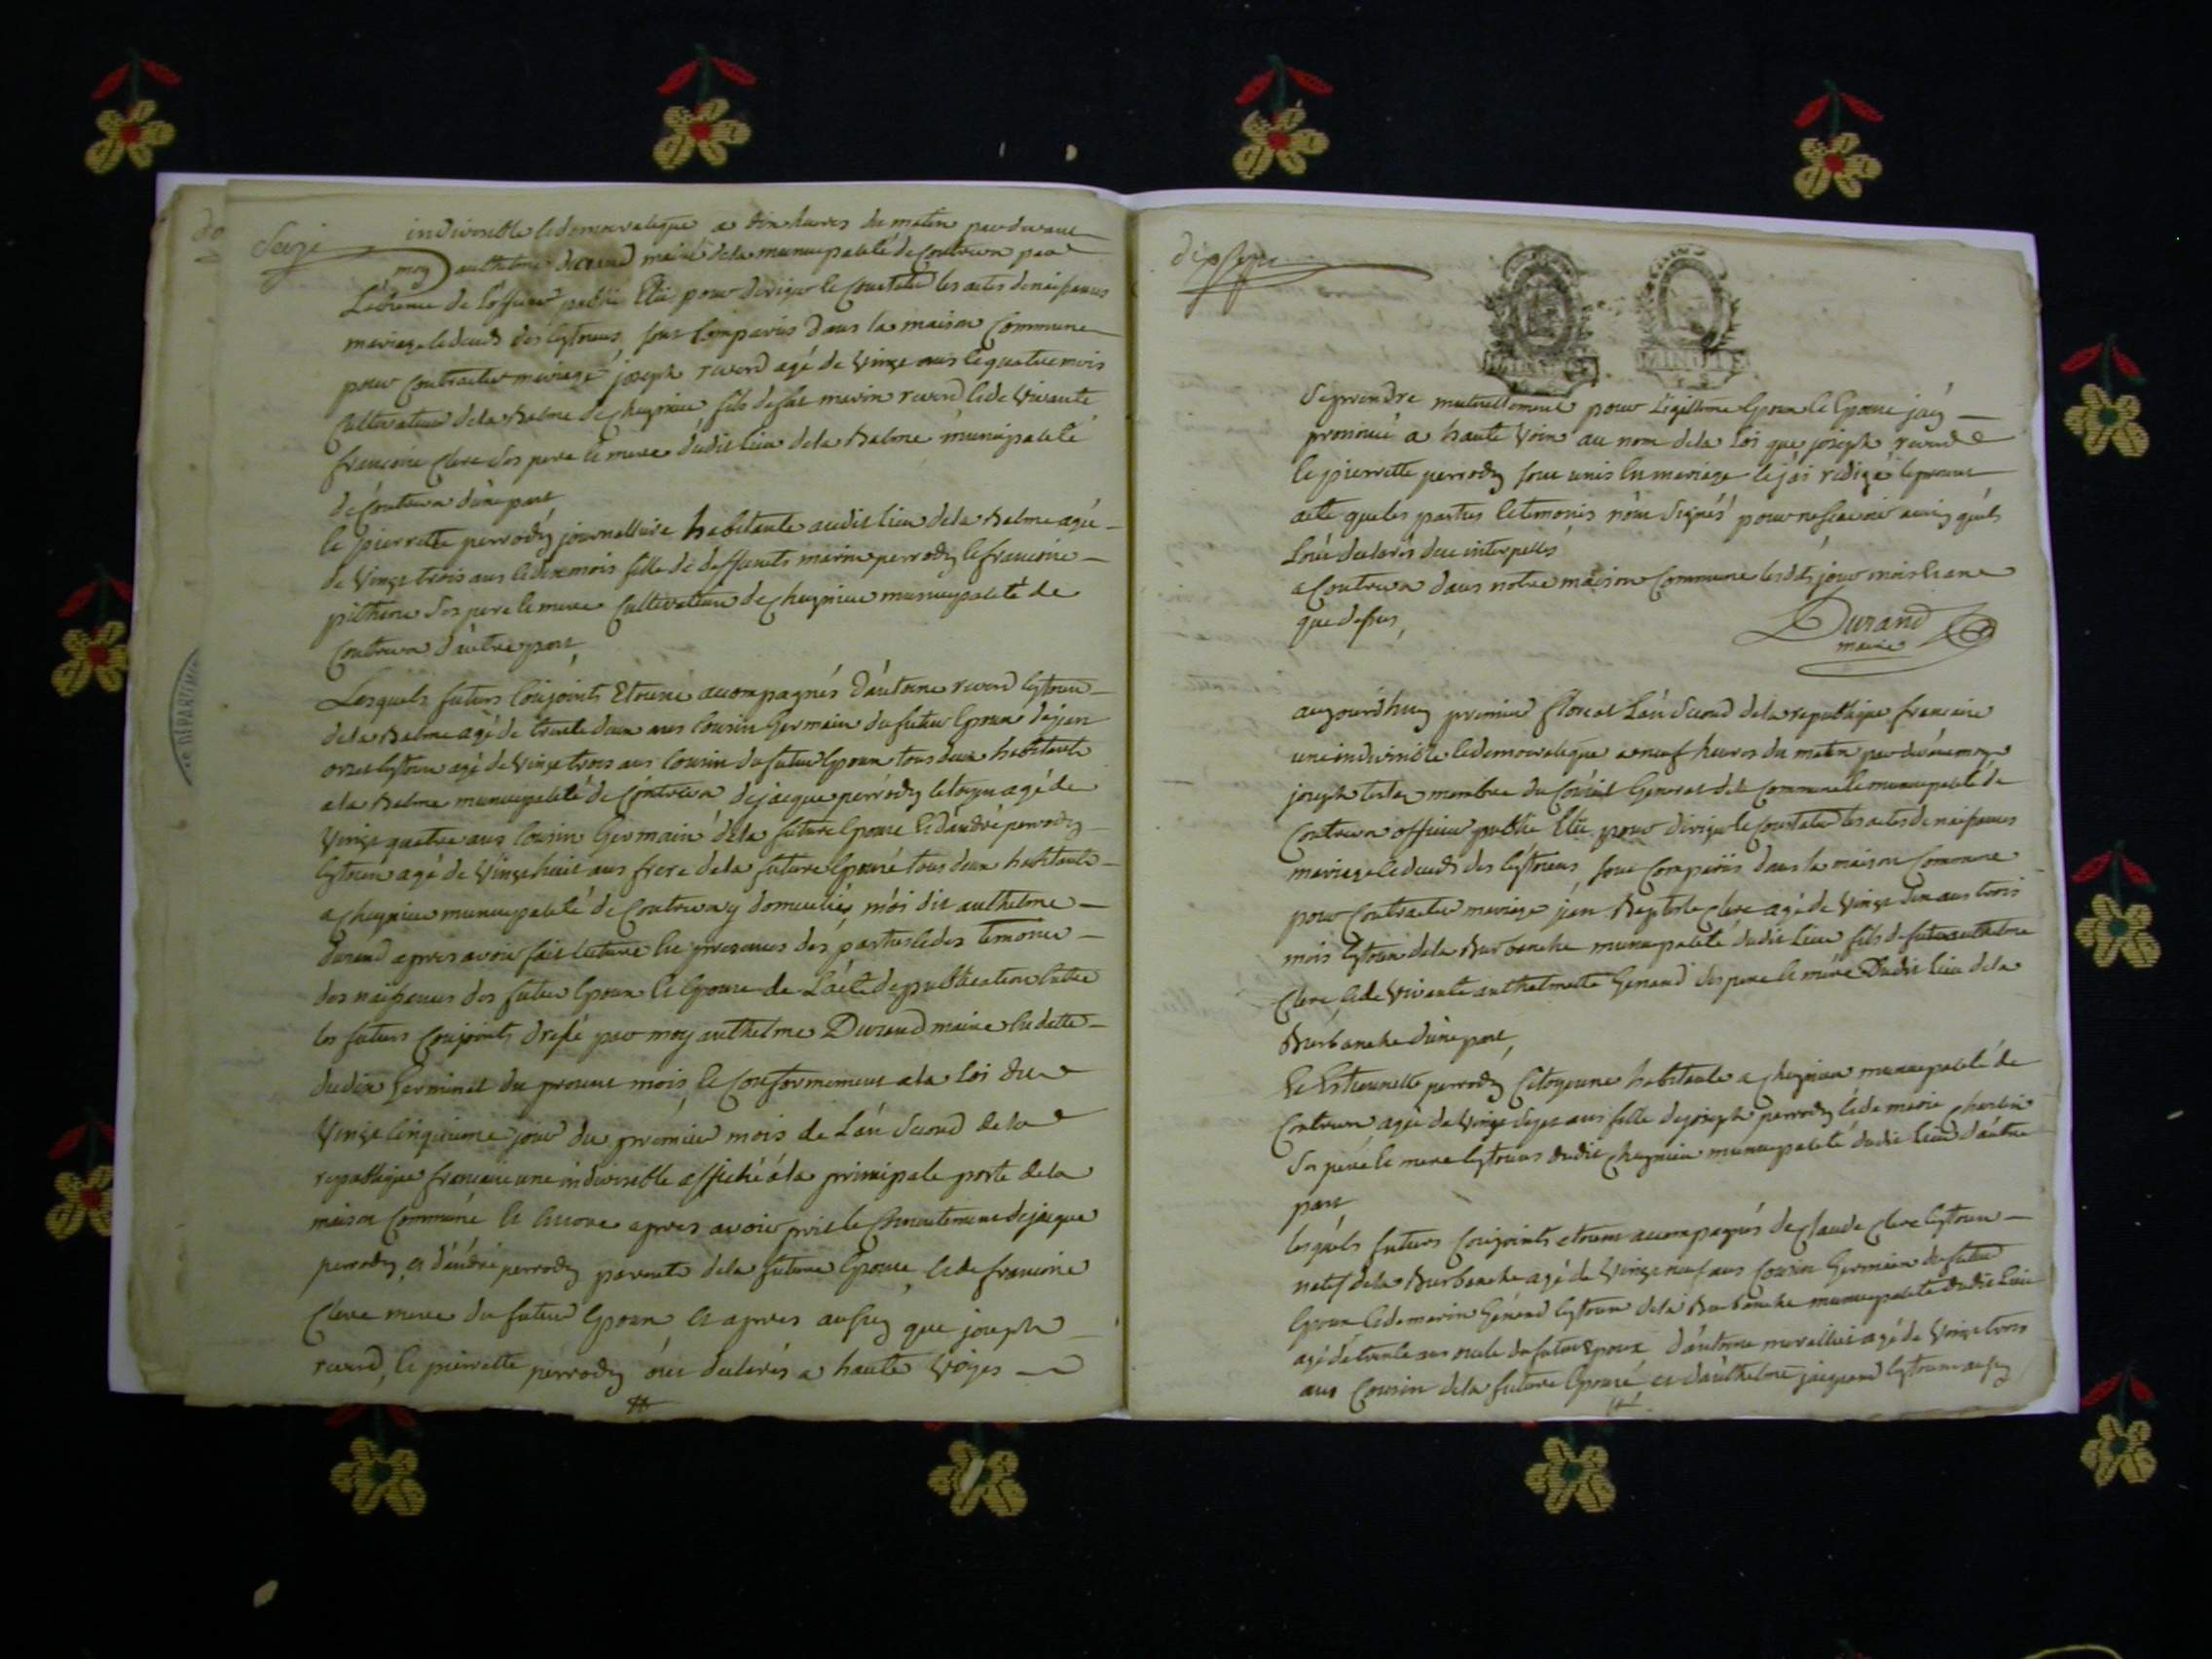 Seize
indivisible et democratique a dix heures du matin par devant
moy anthelme durand maire de la municipalité de Contrevoz par
L'absence de l'officier public Elu pour diriger et Constater les actes de naissances
mariage et deces des Cytoiens, sont Comparus dans la maison Commune
pour Contracter mariage joseph revord agé de Vingt ans et quatre mois
Cultivateur de la Balme de Cheygnieu fils de feu marin revord et de Vivante
francoise Clerc ses pere et mere dudit lieu de la Balme municipalité
de Contrevoz d'une part
Et pierrette perrody journalliere habitante audit lieu de la Balme agée
de Vingt trois ans et dix mois fille de deffunts marin perrody et francoise
ses pere et mere Cultivateur de Cheygnieu municipalité de
Contrevoz d'autre part
Lesquels futurs Conjoints Etoient accompagnés d'antoine revord Cytoien
de la Balme agé de trente deux ans Cousin Germain du futur Epoux de jean
Cytoien agé de Vingt trois ans Cousin du futur Epoux tous deux habitants
a la Balme municipalité de Contrevoz de jacque perrody Citoyen agé de
Vingt quatre ans Cousin Germain de la future Epouse et d'andré perrody
Cytoien agé de Vingt huit ans frere de la future Epouse tous deux habitants
a Cheygnieu municipalité de Contrevoz y domiciliés, moi dit anthelme
durand apres avoir fait lecture En presences des parties et des temoins
des naissances des futur Epoux et Epouse de L'acte de publication Entre
les futurs Conjoints dressé par moy anthelme Durand maire En datte
du dix Germinal du present mois, et Conformement a la loi du
Vingt Cinquieme jour du premier mois de L'an Second de la
republique francaise une indivisible affiché a la principale porte de la
maison Commune Et Encore apres avoir pris le Consentement de jacque
perrody et d'andré perrody parents de la future Epouse, et de francoise
Clerc mere du futur Epoux et apres aussy que joseph
revord, et pierrette perrody ont declarés a haute Voixes
dix sept
MINUTE
Se prendre mutuellement pour Legitime Epoux et Epouse j'aÿ
prononcé a haute Voix au nom de la Loi que joseph revord
Et pierrette perrody sont unis En mariage et j'ai redigé le present
acte que les parties et temoins n'ont Signés pour ne scavoir ainsy qu'ils
L'ont declarés de ce interpellés
a Contrevoz dans notre maison Commune lesdits jour mois Et an
que dessus
Durand
maire
aujourdhuy premier floreal L'an Second de la republique francaise
une indivisible et democratique a neuf heures du matin par devant moy
joseph membre du Conseil General de la Commune et municipalité de
Contrevoz officier public Elu pour diriger et Constater les actes de naissances
mariage et deces des Cytoiens sont Comparus dans la maison Commune
pour Contracter mariage jean Baptiste Clerc agé de Vingt deux ans trois
mois Cytoien de la Burbanche municipalité dudit lieu fils de feu anthelme
Clerc et de Vivante anthelmette Genand ses pere et mere Dudit lieu de la
Burbanche d'une part,
Et Estiennette perrody Citoyenne habitante a Cheygnieu municipalité de
Contrevoz agée de Vingt sept ans fille de joseph perrody et de marie Charlin
Ses pere et mere Cytoiens dudit Cheygnieu municipalité dudit lieu d'autre
part
lesquels futurs Conjoints etoient accompagnés de Claude Clerc Cytoien
natif de la Burbanche agé de Vingt neuf ans Cousin Germain du futur
Epoux et de marin Génand Cytoien de la Burbanche municipalité dudit lieu
agé de trente ans oncle du futur Epoux d'antoine agé de Vingt trois
ans Cousin de la future Epouse et d'anthelme Cytoien aussy